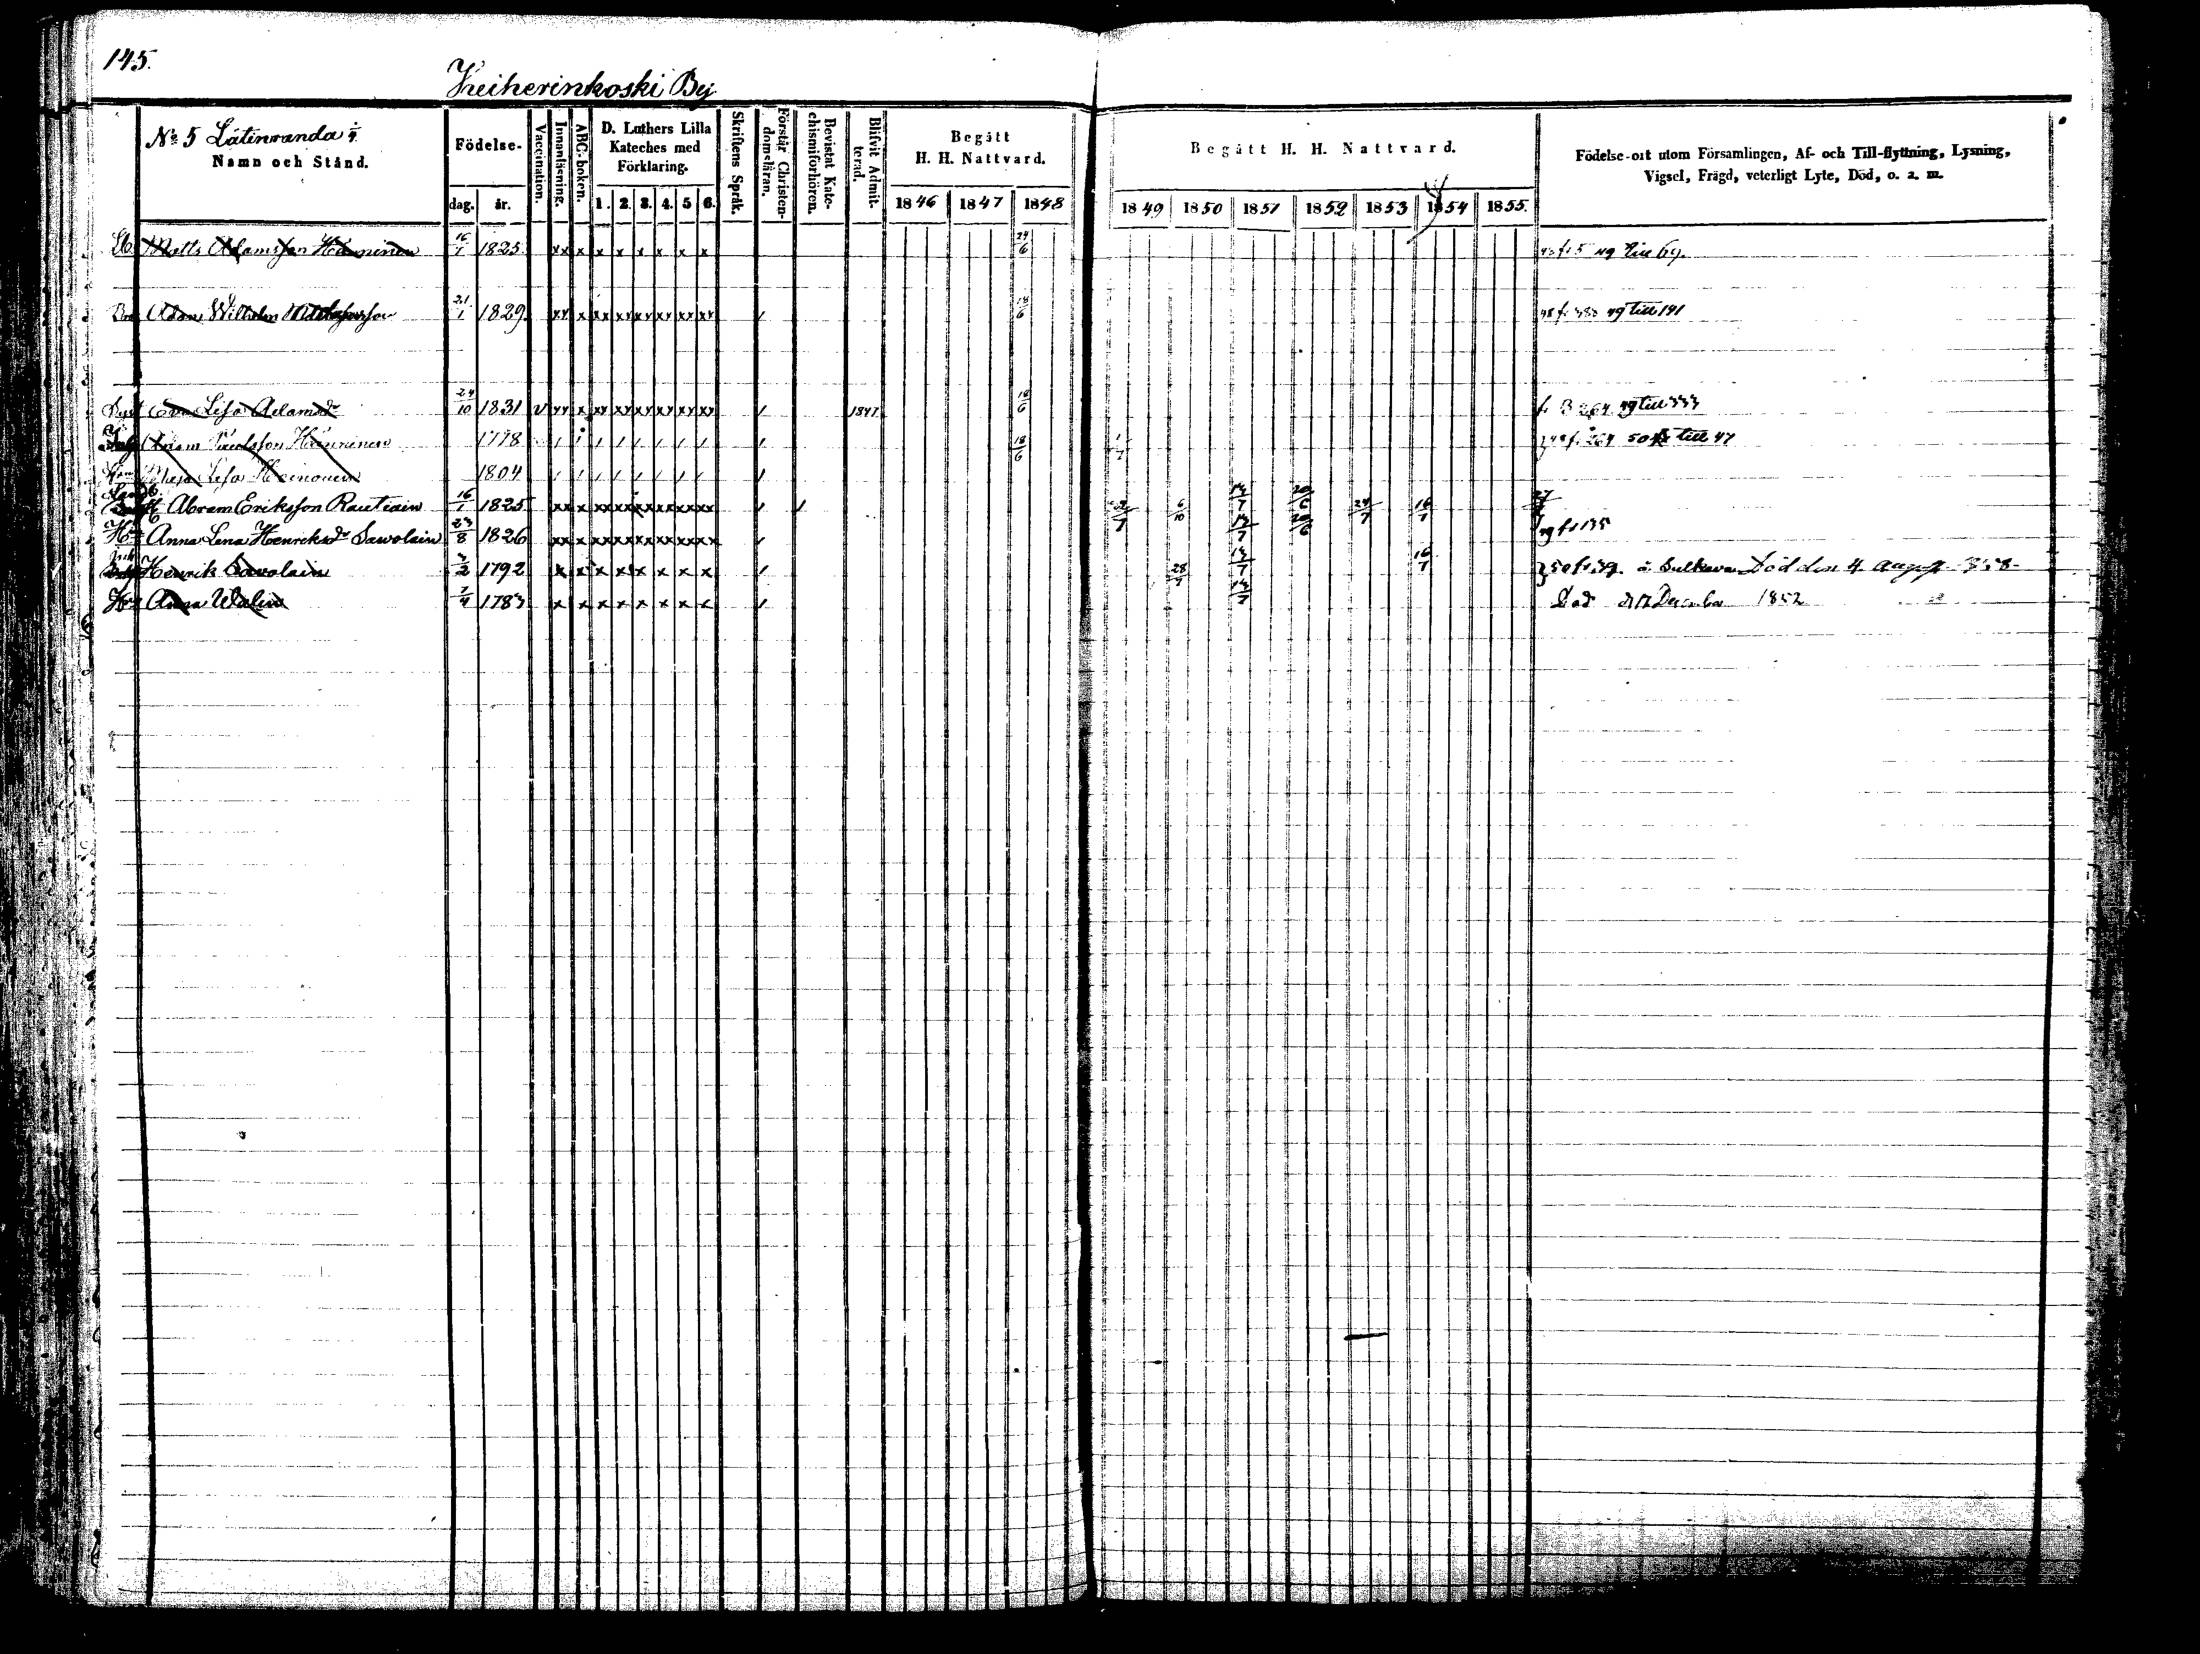 145.
Keiherinkoski By
No 5 Lätinranda 1/4
Namn och Stånd.
Födelse-
dag. år.
Vaccination.
Innanläsning.
ABC-boken.
D. Luthers Lilla
Kateches med
Förklaring.
1. 2. 3. 4. 5 6.
Skriftens Språk.
Förstår Christen-
domsläran.
Bevistat Kate-
chismiförhören.
Blifvit Admit-
terad.
Begått
H. H. Nattvard.
1846 1847 1848
Begått H. H. Nattvard.
1849 1850 1851 1852 1853 1854 1855.
Födelse-ort utom Församlingen, Af- och Till-flyttning, Lysning,
Vigsel, Frägd, veterligt Lyte, Död, o. a. m.
Matts Adamsson Hänninen 16/1 1825. xx x x x x x x x 24/6 49 till 69.
Adam Wilhelm 21/1 1829. xx x xx xx xx xx xx xx / 18/6 49 till 191
Eva Lisa Adamsdr 24/10 1831 v xx x xx xx xx xx xx xx / 1847 18/6 f. B 264 49 till 333
Adam Hänninen 1778 / / / / / / / / / 18/6 1/7 48 fr 264 50 till 47
Maja Lisa Heinonen 1804 / / / / / / / / /
Abram Eriksson Rautiain 16/1 1825 xx x xx xx xx xx xx xx / / 6/10 13/7 20/6 24/7 16/7
Hu Anna Lena Henriksdr Sawolain 23/8 1826 xx x xx xx xx xx xx xx / 13/7 20/6 49 fr 135
Henrik Sawolain 3/2 1792 x x x x x x x x / 28/7 13/7 16/7 50 fr 39. Sulkava Död den 4 August
Hu Anna Walin 7/4 1783 x x x x x x x x / 13/7 Död d 17 December 1852